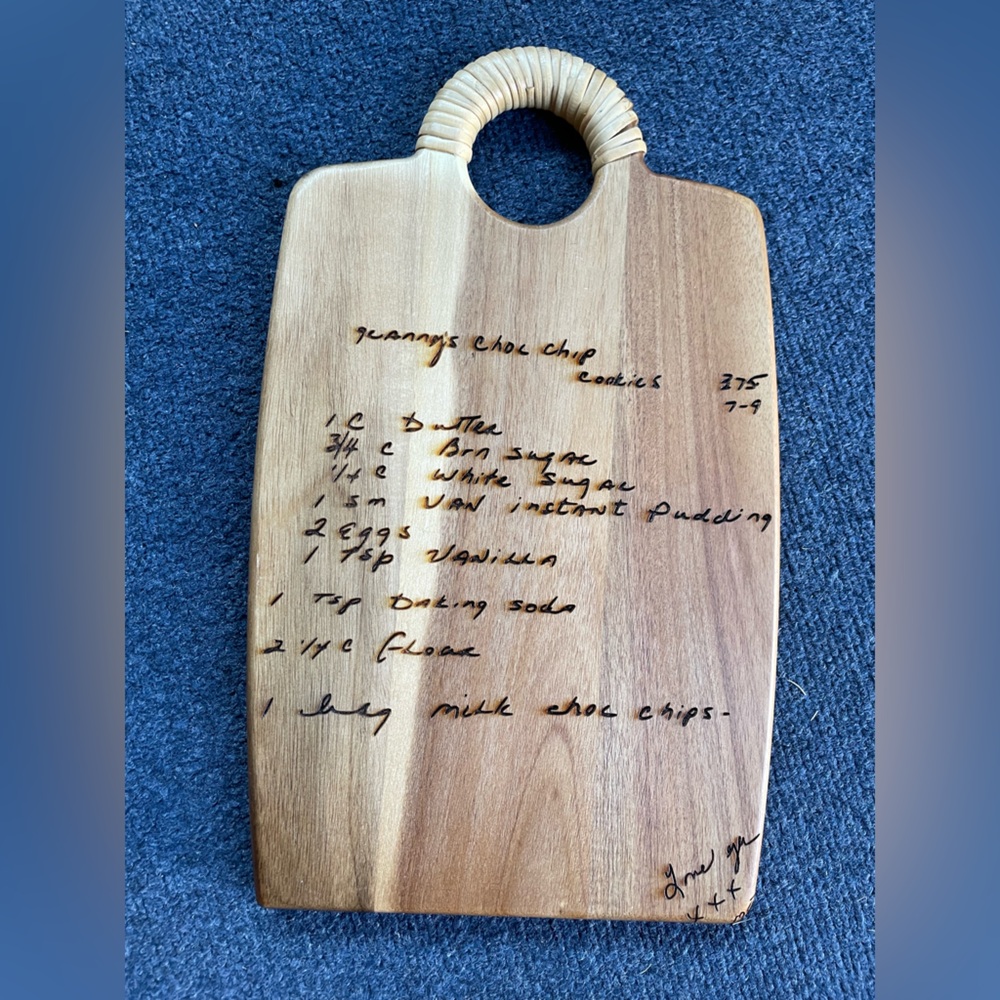 granny's choc chip
cookies 375
7-9
1 C butter
3/4 c Brn sugar
1/4 c white sugar
1 sm VAN instant pudding
2 Eggs
1 Tsp VANiLLA
1 Tsp baking soda
2 1/4 c flour
1 milk choc chips-
Love
x++